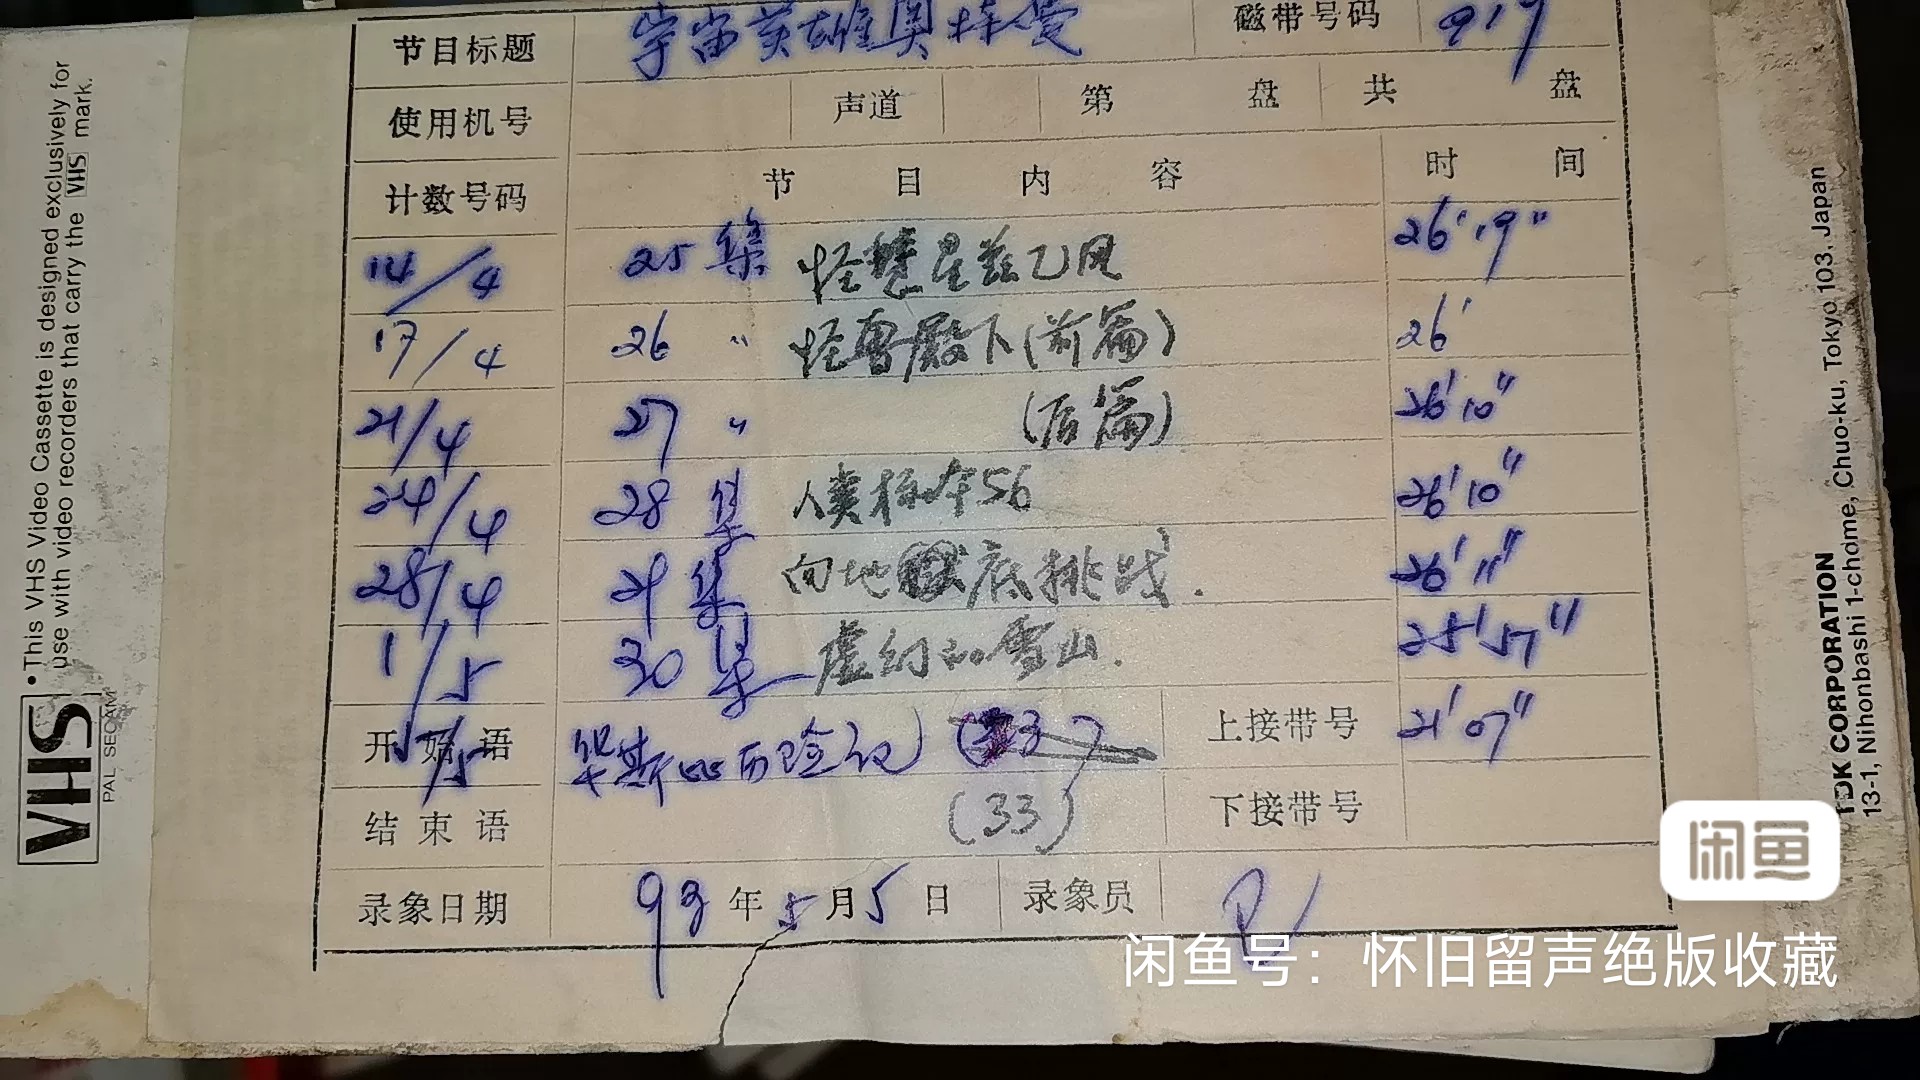 • This VHS Video Cassette is designed exclusively for
use with video recorders that carry the VHS mark.
VHS
PAL SECAM
节目标题 宇宙英雄奥特曼 磁带号码 917
使用机号 声道 第 盘 共 盘
计数号码 节目内容 时间
14/4 25集 怪彗星兹乙风 26'19"
17/4 26 〃 怪兽殿下(前篇) 26'
21/4 27 〃 (后篇) 26'10"
24/4 28集 人类标本56 26'10"
28/4 29集 向地底挑战. 26'11"
1/5 30集 虚幻的雪山. 25'57"
开始语 5/5 架斯比历险记 上接带号 21'07"
结束语 (33) 下接带号
录象日期 93年5月5日 录象员
TDK CORPORATION
13-1, Nihonbashi 1-chome, Chuo-ku, Tokyo 103, Japan
闲鱼
闲鱼号：怀旧留声绝版收藏